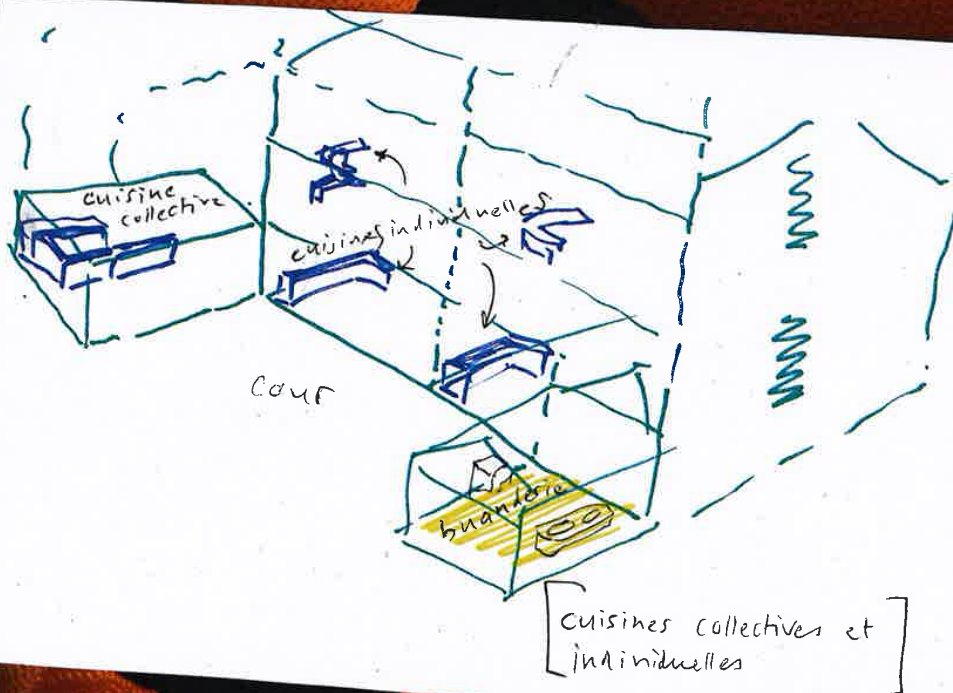 cuisine
collective
cuisines individuelles
cour
buanderie
[cuisines collectives et
individuelles]